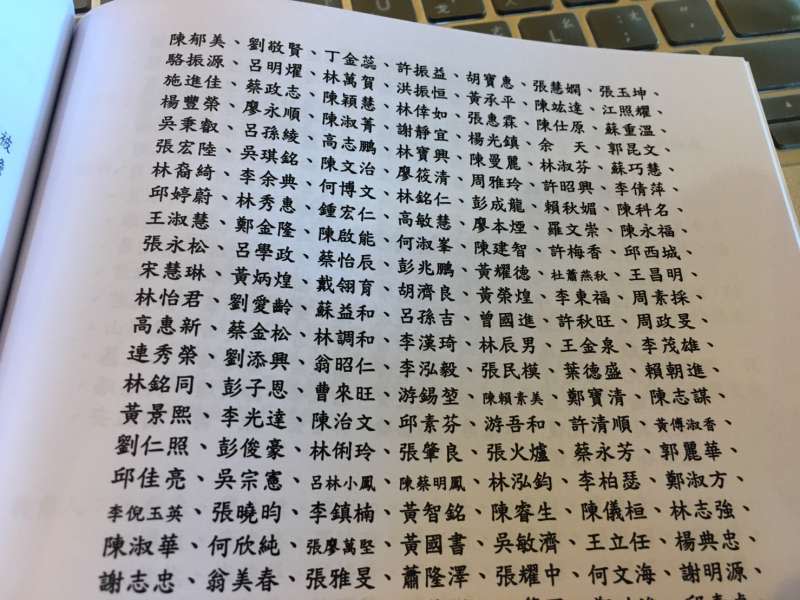 陳郁美、劉敬賢、丁金蕊、許振益、胡寶惠、張慧嫻、張玉坤、
駱振源、呂明燿、林萬賀、洪振恒、黃承平、陳竑達、江照耀、
施進佳、蔡政志、陳穎慧、林倖如、張惠霖、陳仕原、蘇重溫、
楊豐榮、廖永順、陳淑菁、謝靜宜、楊光鎮、余　天、郭昆文、
吳秉叡、呂孫綾、高志鵬、林寶興、陳曼麗、林淑芬、蘇巧慧、
張宏陸、吳琪銘、陳文治、廖筱清、周雅玲、許昭興、李倩萍、
林裔綺、李余典、何博文、林銘仁、彭成龍、賴秋媚、陳科名、
邱婷蔚、林秀惠、鍾宏仁、高敏慧、廖本煙、羅文崇、陳永福、
王淑慧、鄭金隆、陳啟能、何淑峯、陳建智、許梅香、邱西城、
張永松、呂學政、蔡怡辰、彭兆鵬、黃耀德、杜蕭燕秋、王昌明、
宋慧琳、黃炳煌、戴翎育、胡濟良、黃榮煌、李東福、周素採、
林怡君、劉愛齡、蘇益和、呂孫吉、曾國進、許秋旺、周政旻、
高惠新、蔡金松、林調和、李漢琦、林辰男、王金泉、李茂雄、
連秀榮、劉添興、翁昭仁、李泓毅、張民模、葉德盛、賴朝進、
林銘同、彭子恩、曹來旺、游錫堃、陳賴素美、鄭寶清、陳志謀、
黃景熙、李光達、陳治文、邱素芬、游吾和、許清順、黃傅淑香、
劉仁照、彭俊豪、林俐玲、張肇良、張火爐、蔡永芳、郭麗華、
邱佳亮、吳宗憲、呂林小鳳、陳蔡明鳳、林泓鈞、李柏瑟、鄭淑方、
李倪玉英、張曉昀、李鎮楠、黃智銘、陳睿生、陳儀桓、林志強、
陳淑華、何欣純、張廖萬堅、黃國書、吳敏濟、王立任、楊典忠、
謝志忠、翁美春、張雅旻、蕭隆澤、張耀中、何文海、謝明源、
被